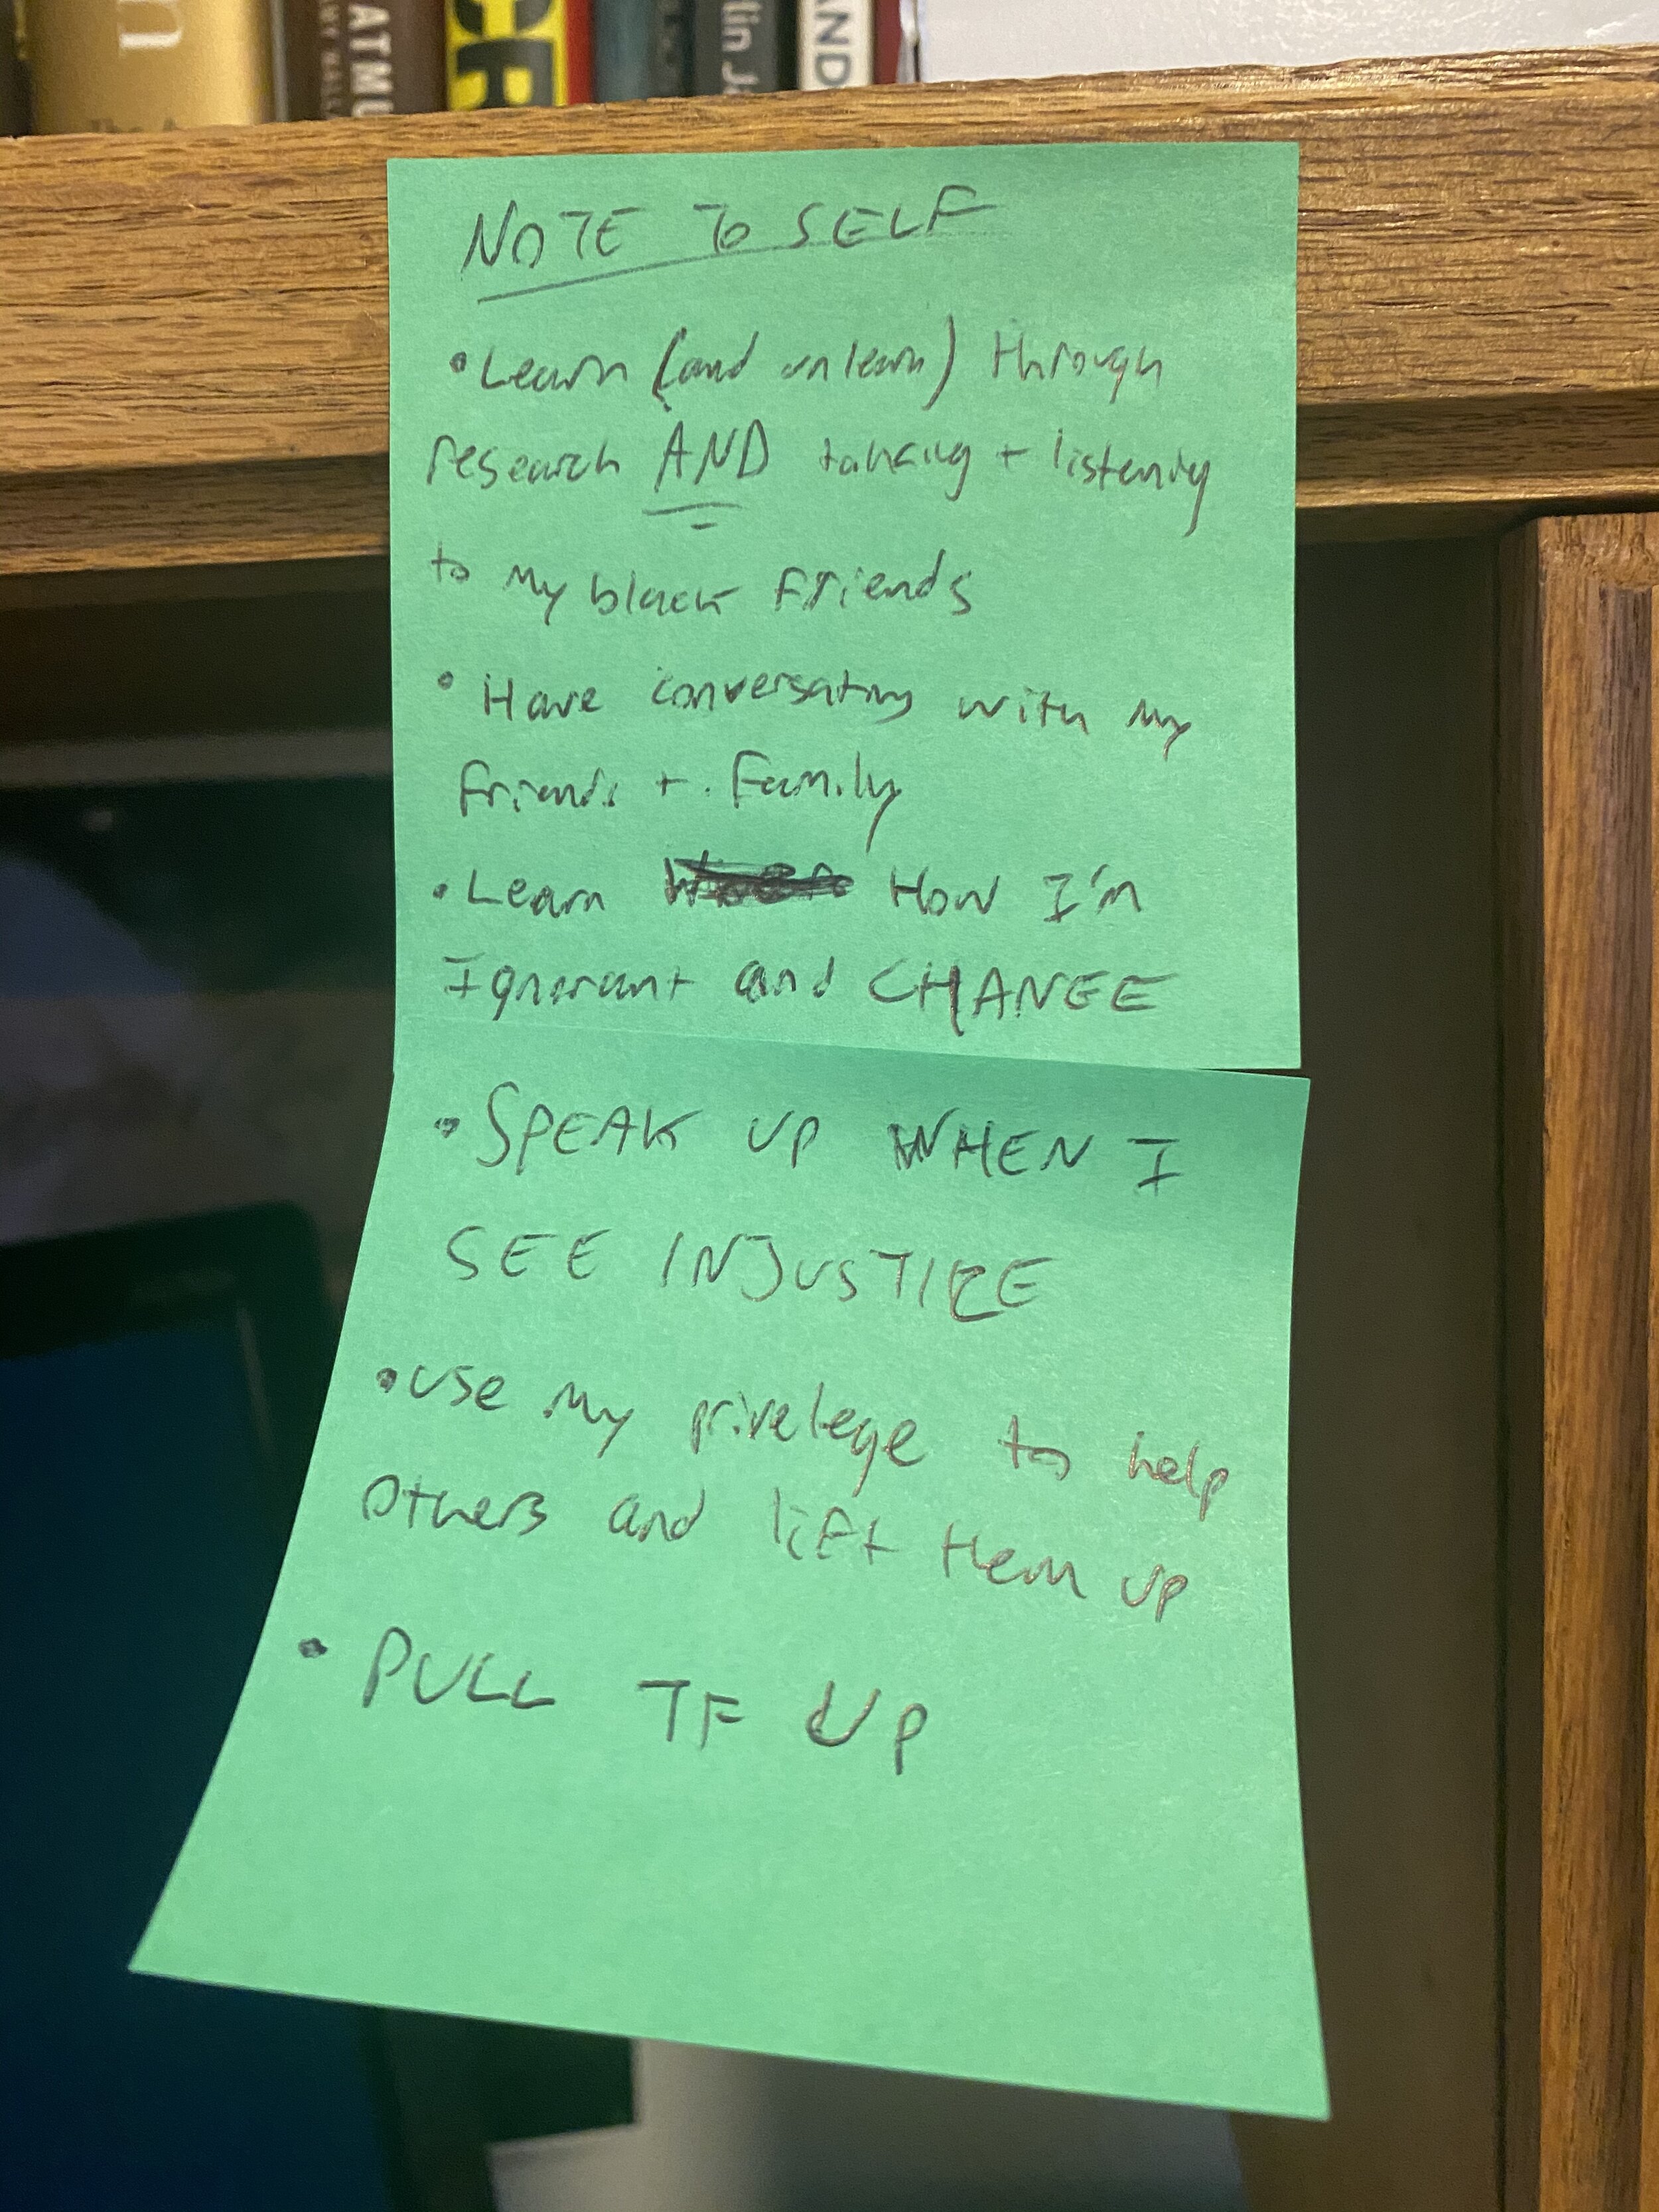 ATM
CR
lin J
AND
NOTE To SELF
• Learn (and unlearn) through
research AND talking + listening
to my black Friends
• Have conversations with my
friends + Family
• Learn How I'm
Ignorant and CHANGE
• SPEAK UP WHEN I
SEE INJUSTICE
• Use My privelege to help
Others and lift them up
• PULL TF UP